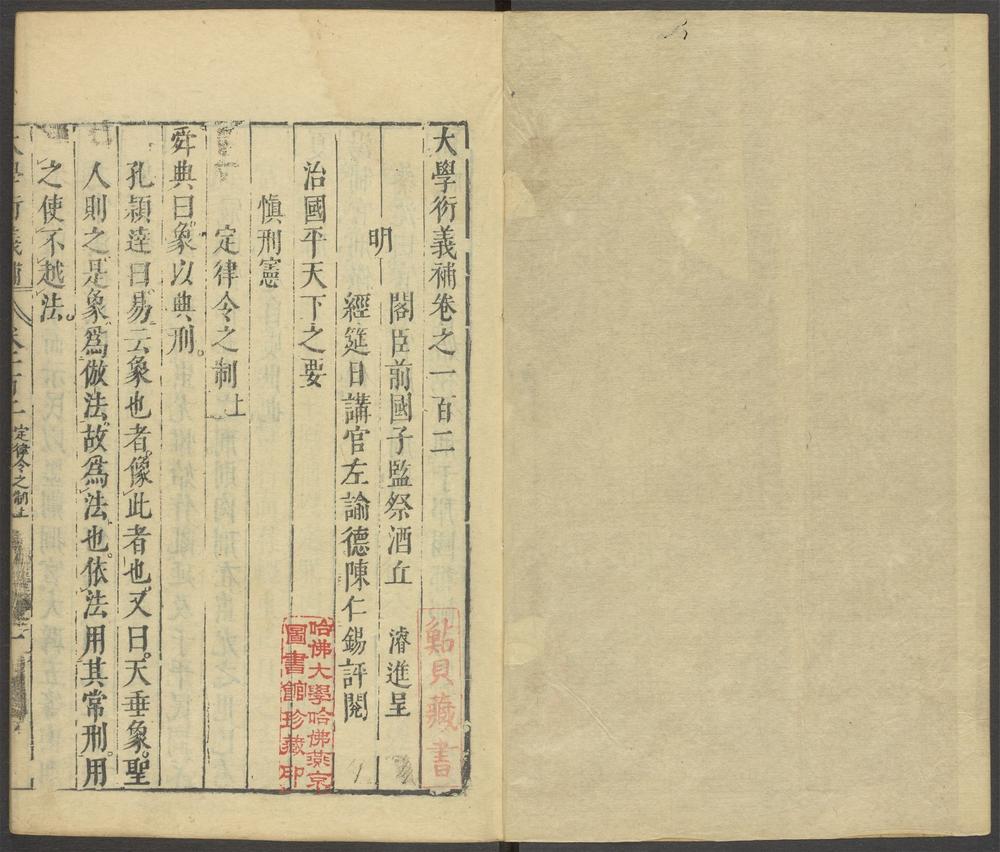 大學衍義補卷之一百二
明
閣臣前國子監祭酒丘 濬進呈
經筵日講官左諭德陳仁錫評閱
治國平天下之要
慎刑憲
定律令之制上
舜典曰象以典刑。
孔頴逹曰易云象也者像此者也又曰天垂象聖
人則之是象爲倣法故爲法也依法用其常刑用
之使不越法。
定律令之制上
點貝藏書
哈佛大學哈佛燕京
圖書館珍藏印